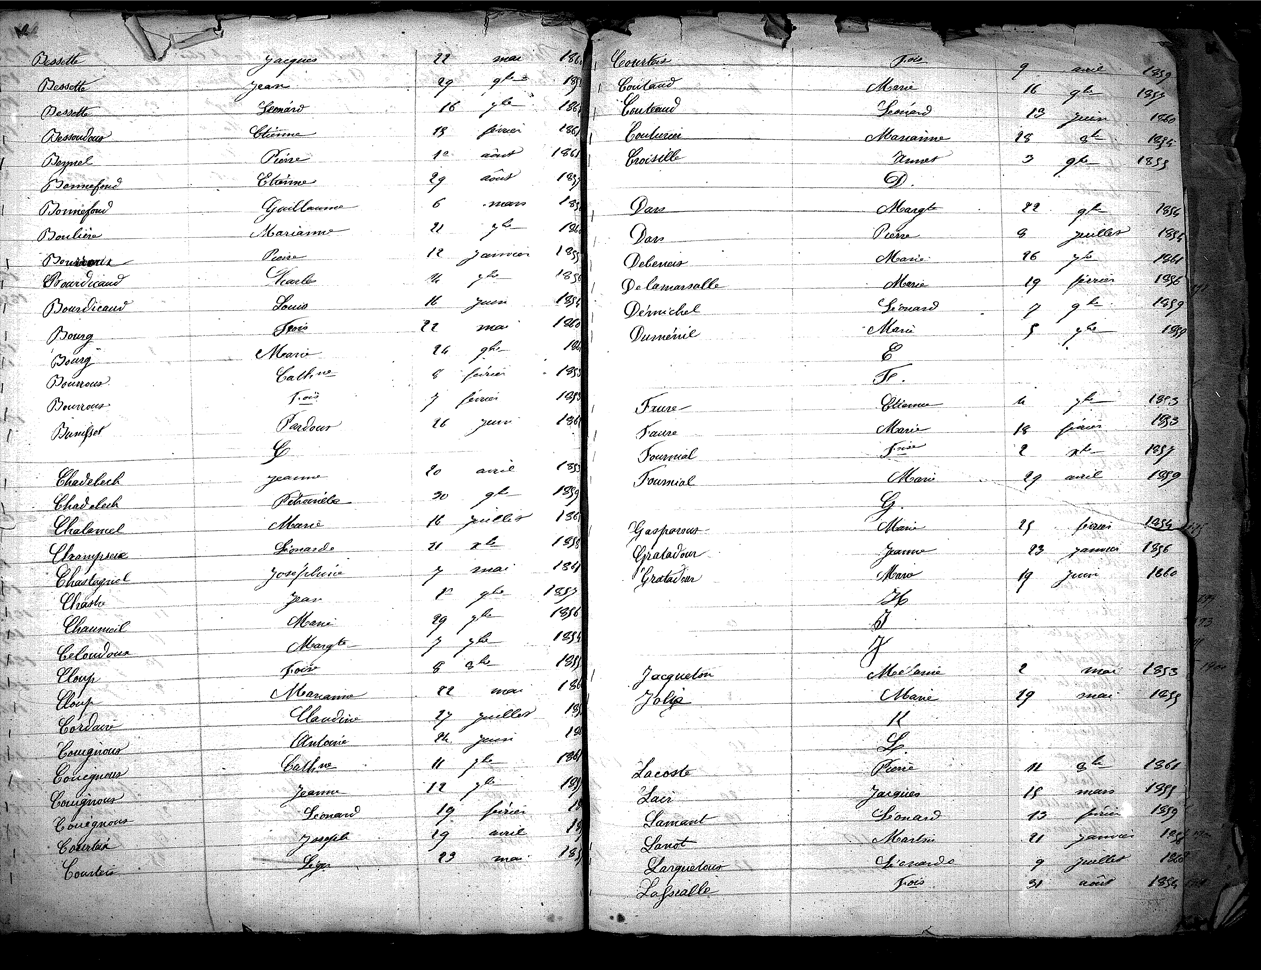 Bessette Jacques 22 mai 186
Bessette Jean 29 9bre 185
Bessette Léonard 16 7bre 186
Bessoudoux Etienne 15 février 1861
Beynel Pierre 1er août 1861
Bonnefond Etienne 29 août 185
Bonnefond Guillaume 6 mars 185
Boulière Marianne 21 7bre 186
Pierre 12 janvier 1855
Bourdicaud Charles 4 7bre 1856
Bourdicaud Louis 16 juin 1854
Bourg Frois 22 mai 1860
Bourg Marie 24 9bre 186
Bourrous Cathne 8 février 1853
Bourrous Frois 7 février 1853
Pardoux 26 juin 186
C
Chadelech Jeanne 20 avril 1853
Chadelech Pétronille 30 9bre 1859
Chalamel Marie 16 juillet 186
Champseix Léonarde 21 Xbre 1858
Chastagnol Joséphine 7 mai 1861
Chastre Jean 1er 9bre 1857
Chaumeil Marie 29 7bre 1856
Celoudoux Margte 7 7bre 1854
Cloup Frois 8 8bre 1855
Cloup Marianne 22 mai 186
Cordaire Claudine 27 juillet 185
Couegnoux Antoine 24 juin 18
Couegnoux Cathne 11 7bre 1861
Couegnoux Jeanne 12 7bre 185
Couegnoux Léonard 19 février 18
Courteix Joseph 29 avril 18
Courteix Léger 23 mai 185
Courteix Frois 9 avril 1859
Coutaud Marie 16 9bre 1855
Couteaud Léonard 13 juin 1860
Couturier Marianne 28 8bre 1854
Croisille Annet 3 9bre 1855
D.
Dars Margte 22 9bre 1854
Dars Pierre 8 juillet 1854
Debenais Marie 26 7bre 1861
Delamarsalle Marie 19 février 1856
Dérnichel Léonard 7 9bre 1859
Duménil Marie 5 7bre 1859
E
F.
Faure Etienne 4 7bre 1853
Faure Marie 18 février 1853
Fournial Frois 2 Xbre 1857
Fournial Marie 29 avril 1859
G.
Gasparoux Marie 25 février 1854
Gratadour Jeanne 23 janvier 1856
Gratadour Marie 19 juin 1860
H
I
J
Jacqueton Mélanie 2 mai 1853
Jolia Marie 29 mai 1855
K
L.
Lacoste Pierre 11 8bre 1861
Lair Jacques 15 mars 1855
Lamant Léonard 13 février 1859
Lanot Martin 21 janvier 1858
Larquetoux Léonarde 9 juillet 1860
Frois 31 août 1854